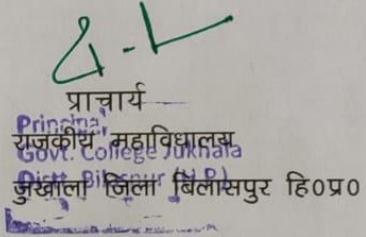 प्राचार्य
Principal
राजकीय महाविधालय
Govt. College Jukhala
जुखाला जिला बिलासपुर हि०प्र०
Distt. Bilaspur (H.P.)